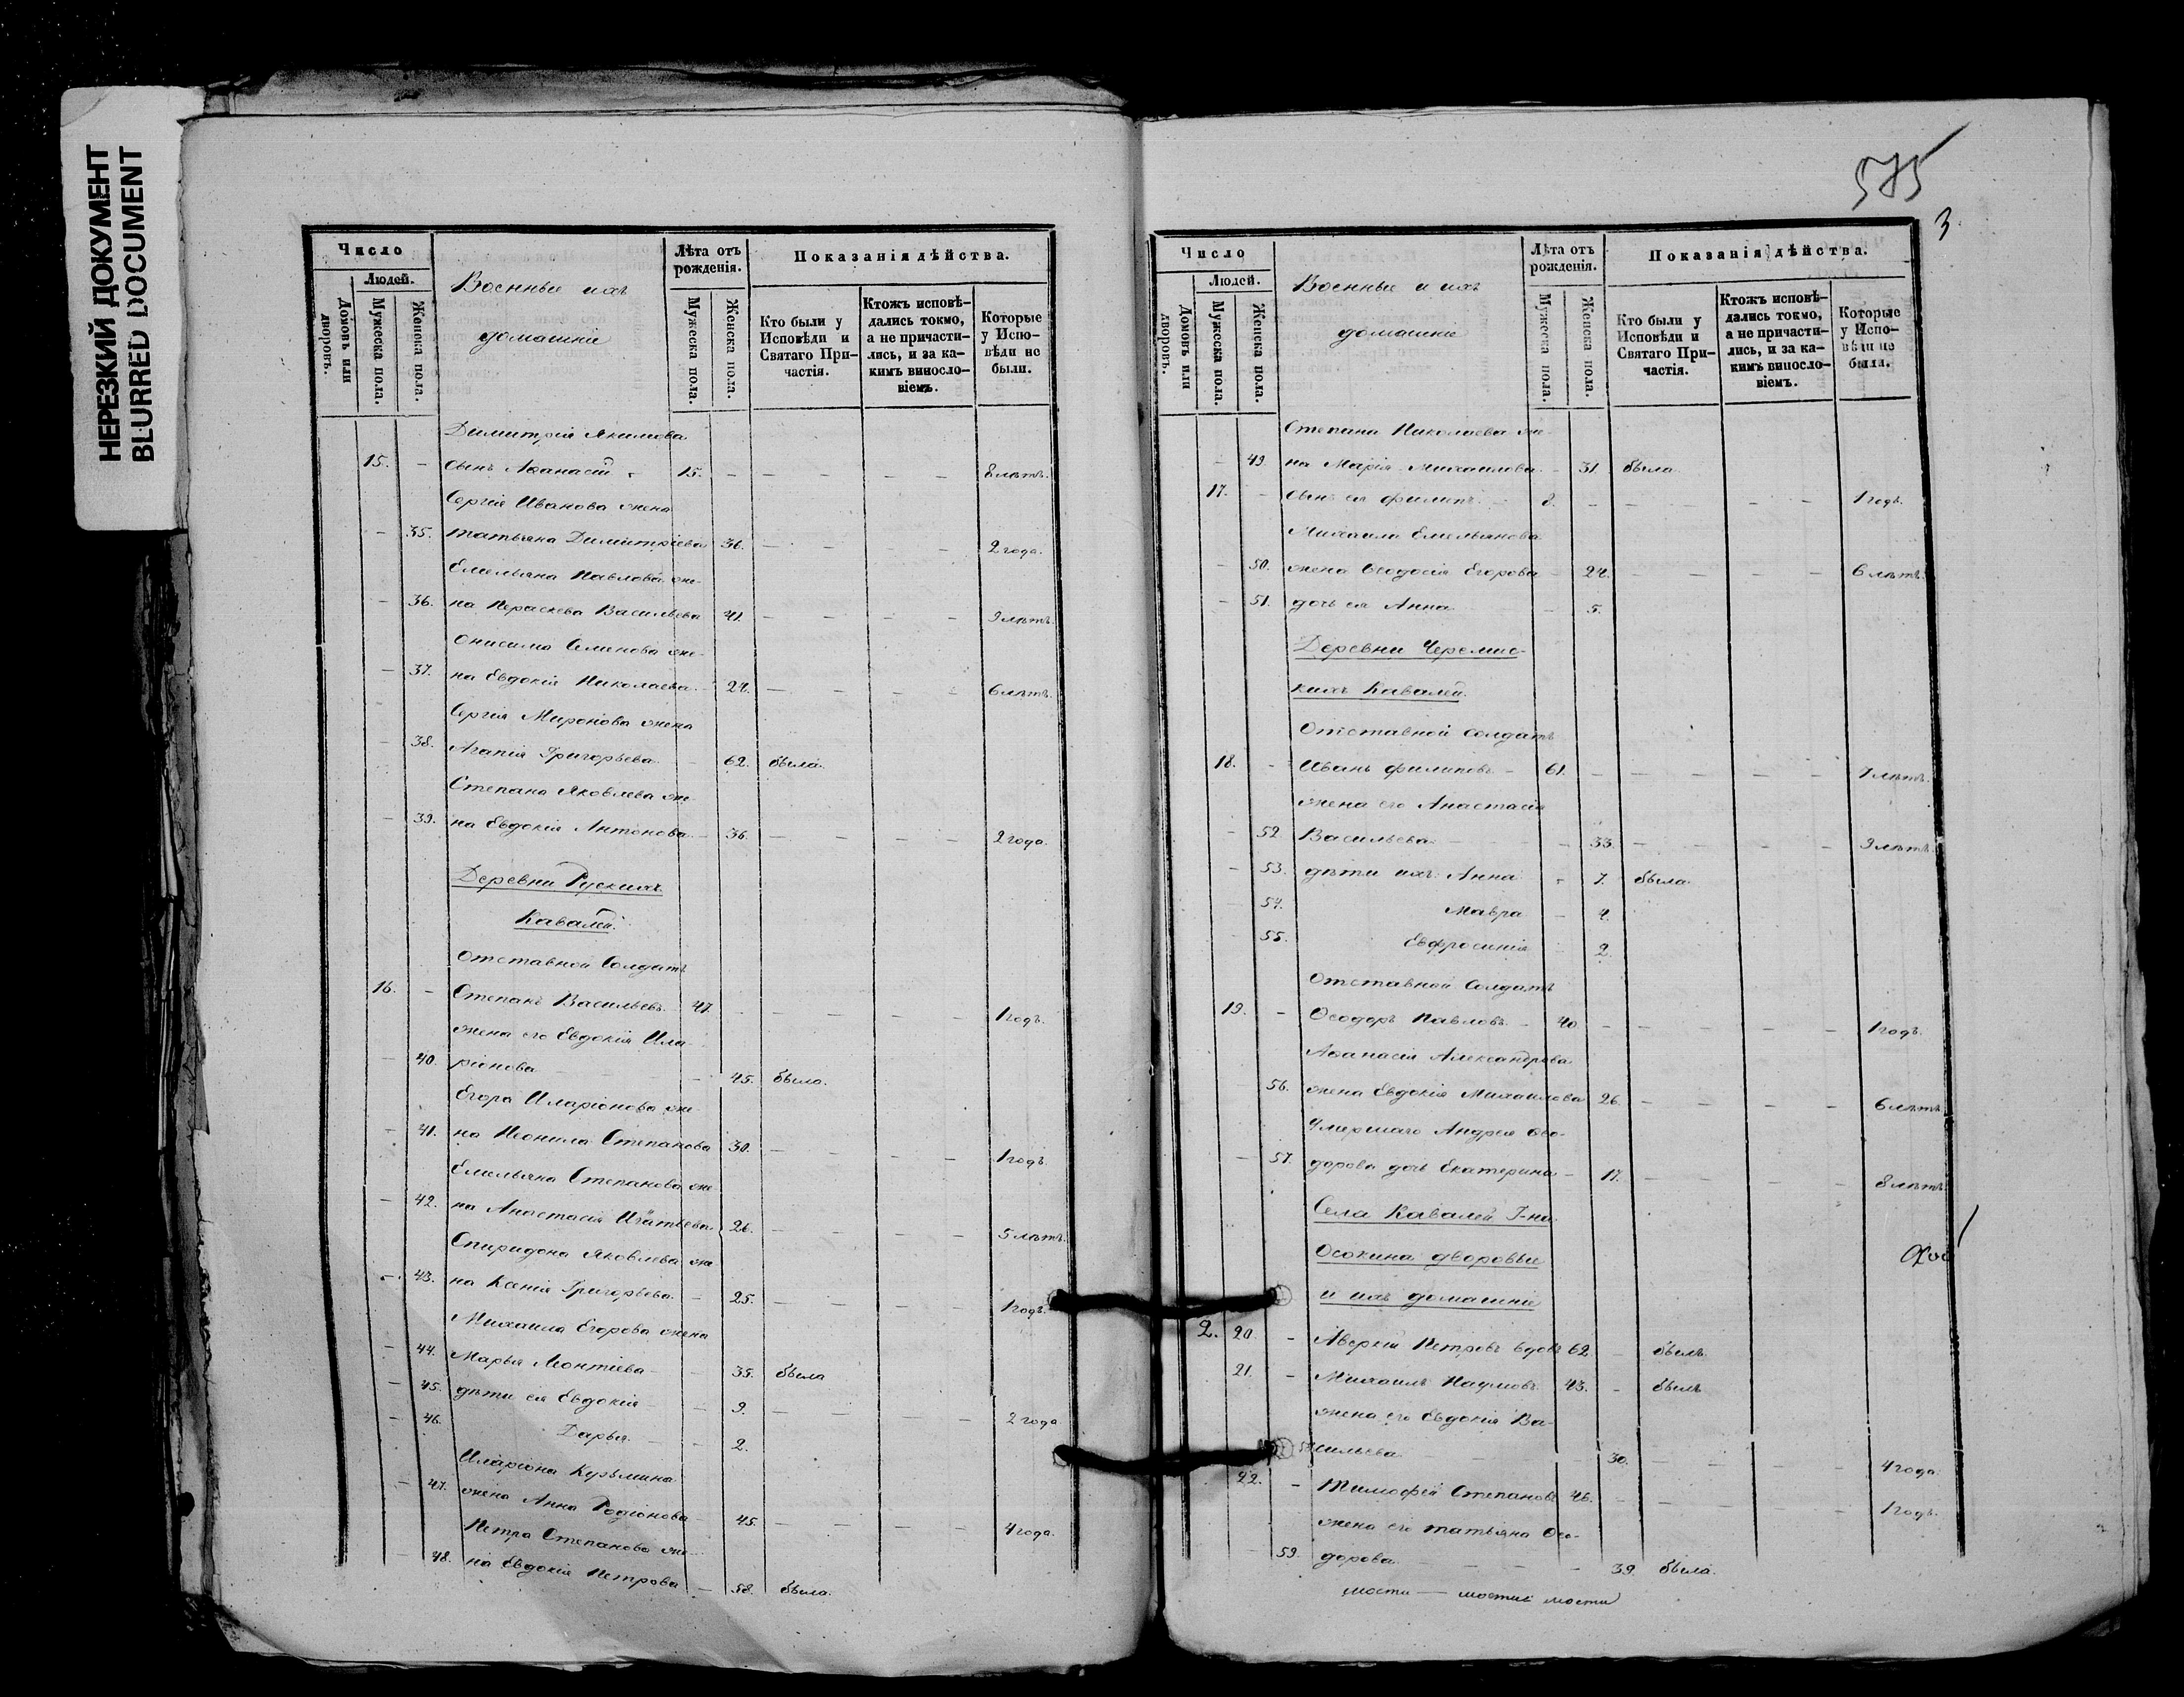 НЕРЕЗКИЙ ДОКУМЕНТ
BLURRED DOCUMENT
Число
Людей.
Домовъ или дворовъ.
Мужеска пола.
Женска пола.
Военные ихъ
домашніе
Лѣта отъ рожденія.
Мужеска пола.
Женска пола.
Показанія дѣйства.
Кто были у Исповѣди и Святаго Причастія.
Ктожъ исповѣдались токмо, а не причастились, и за какимъ винословіемъ.
Которые у Исповѣди не были.
Димитрія Якимова
15. - сынъ Аѳанасій - 15. - - - - - 8 лѣтъ.
Сергія Иванова жена
- 35. Татьяна Димитріева 36. - - - - 2 года.
Емельяна Павлова же-
- 36. на Параскева Васильева 41. - - - - 9 лѣтъ.
Онисима Семенова же-
- 37. на Евдокія Николаева. - 24. - - - - 6 лѣтъ.
Сергія Миронова жена
- 38. Агапія Григорьева. - 62. была.
Степана Яковлева же-
- 39. на Евдокія Антонова. - 36. - - - - 2 года.
Деревни Рускихъ
Кавалей.
Отставной Солдатъ
16. - Степанъ Васильевъ. 47. - - - - - 1 годъ.
жена его Евдокія Ила-
- 40. ріонова - 45. была.
Егора Иларіонова же-
- 41. на Неонила Степанова 30. - - - - 1 годъ.
Емельяна Степанова же-
- 42. на Анастасія Игнатьева. 26. - - - - 5 лѣтъ.
Спиридона Яковлева же-
- 43. на Ксенія Григорьева. - 25. - - - - 1 годъ.
Михаила Егорова жена
- 44. Марья Леонтіева - 35. была
- 45. дѣти ея Евдокія - 9. - - - - 2 года.
- 46. Дарья. - 2.
Иларіона Кузьмина
- 47. жена Анна Родіонова - 45. - - - - 4 года.
Петра Степанова же-
- 48. на Евдокія Петрова - 58. была.
575
3
Число
Людей.
Домовъ или дворовъ.
Мужеска пола.
Женска пола.
Военные и ихъ
домашніе
Лѣта отъ рожденія.
Мужеска пола.
Женска пола.
Показанія дѣйства.
Кто были у Исповѣди и Святаго Причастія.
Ктожъ исповѣдались токмо, а не причастились, и за какимъ винословіемъ.
Которые у Исповѣди не были.
Степана Николаева же-
- 49. на Марія Михаилова. - 31. была
17. - сынъ ея Филиппъ. - 8. - - - - 1 годъ.
Михаила Емельянова
- 50. жена Ѳеодосія Егорова - 24. - - - - 6 лѣтъ.
- 51. дочь ея Анна - 5.
Деревни Черемис-
кихъ Кавалей.
Отставной солдатъ
18. - Иванъ Филиповъ - 61. - - - - - 7 лѣтъ.
жена его Анастасія
- 52. Васильева. - 33. - - - - 9 лѣтъ.
- 53. дѣти ихъ: Анна - 7. была.
- 54. Мавра - 4.
- 55. Евфросинія - 2.
Отставной Солдатъ
19. - Ѳеодоръ Павловъ. - 40. - - - - - 1 годъ.
Аѳанасія Александрова
56. жена Евдокія Михаилова 26. - - - - 6 лѣтъ.
Умершаго Андрея Ѳео-
- 57. дорова дочь Екатерина - 17. - - - - 8 лѣтъ.
Села Кавалей Г-на
Осокина дворовые
и ихъ домашніе
2. 20. - Аверкій Петровъ вдовъ 62. - былъ.
21. - Михаилъ Наумовъ. 43. - былъ
жена его Евдокія Ва-
сильева - 30. - - - - 4 года.
22. - Тимофей Степановъ 46. - - - - 1 годъ.
жена его Татьяна Ѳео-
59. дорова. - 39. была.